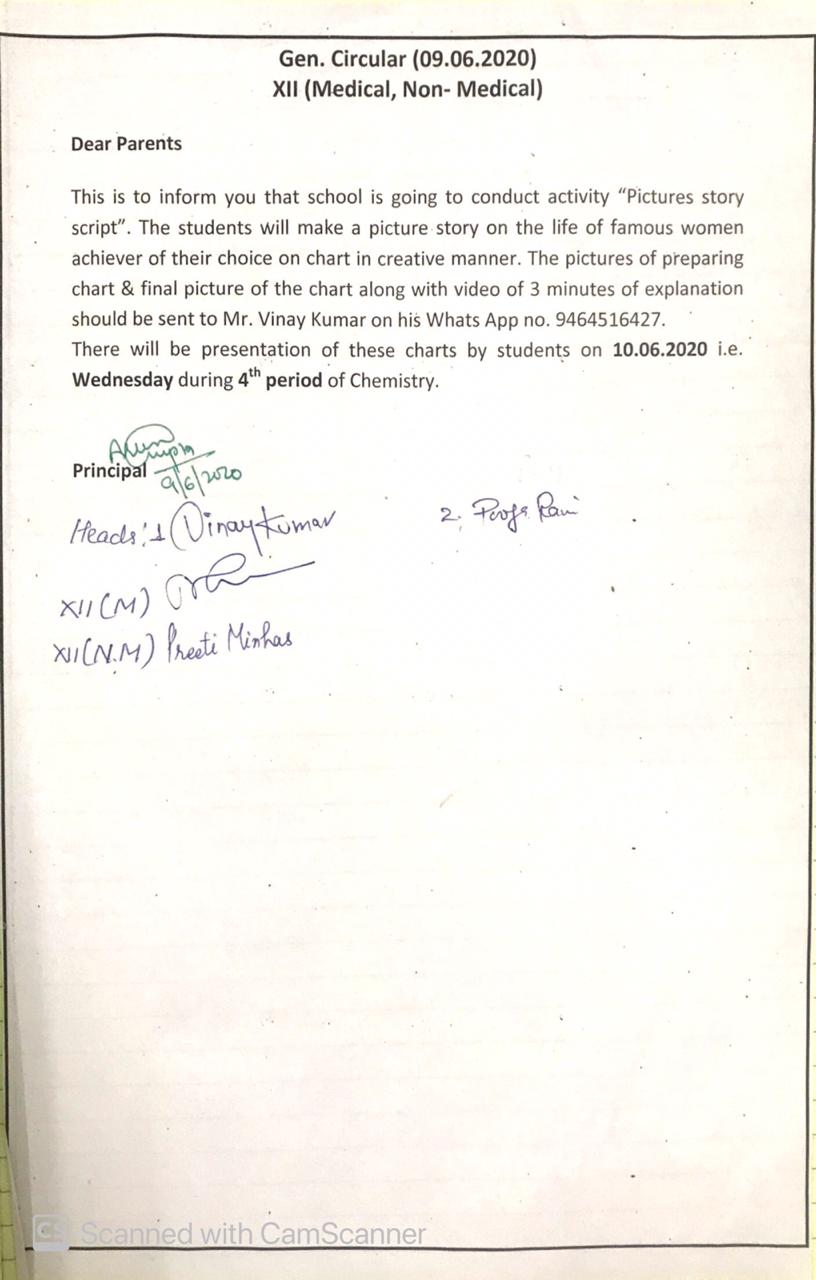 Gen. Circular (09.06.2020)
XII (Medical, Non- Medical)
Dear Parents
This is to inform you that school is going to conduct activity “Pictures story
script”. The students will make a picture story on the life of famous women
achiever of their choice on chart in creative manner. The pictures of preparing
chart & final picture of the chart along with video of 3 minutes of explanation
should be sent to Mr. Vinay Kumar on his Whats App no. 9464516427.
There will be presentation of these charts by students on 10.06.2020 i.e.
Wednesday during 4th period of Chemistry.
Principal
9/6/2020
Heads: 1 Vinay Kumar 2. Pooja Rani
XII (M)
XII (N.M) Preeti Minhas
CS Scanned with CamScanner